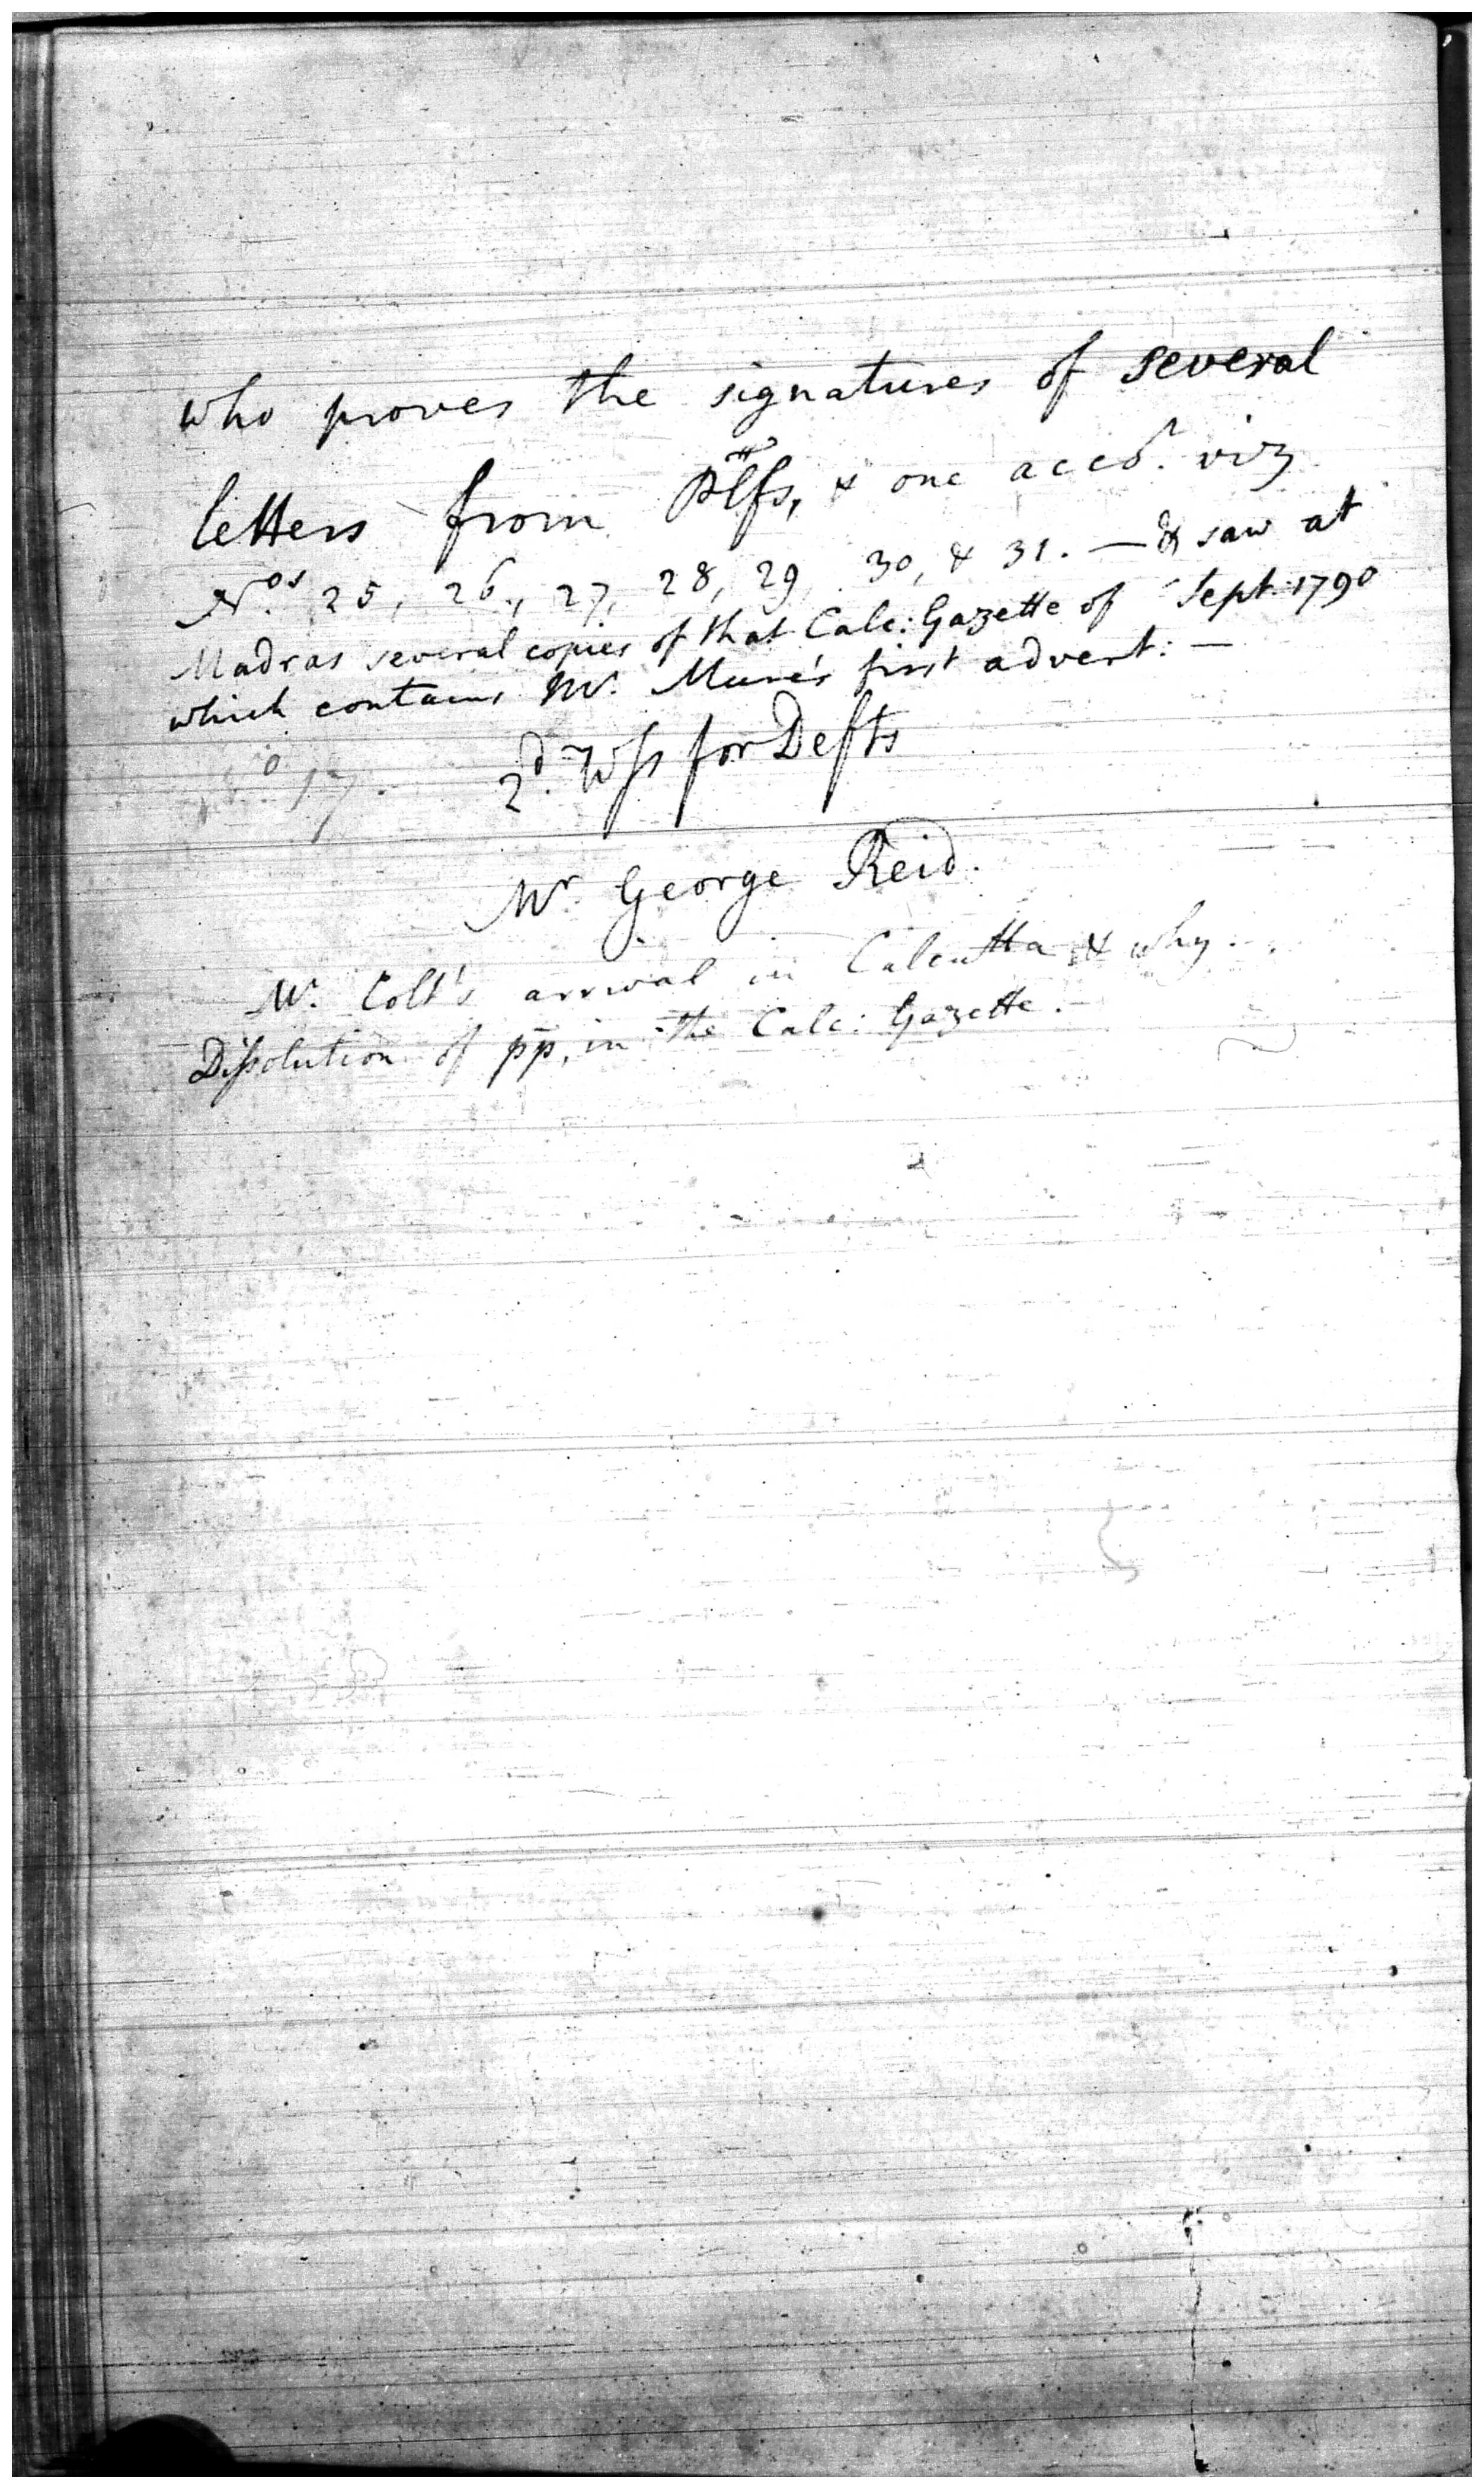 who proves the signatures of several
letters from Pltfs, & one acco.t viz
N.os 25, 26, 27, 28, 29, 30, & 31. — & saw at
Madras several copies of that Calc: Gazette of Sept. 1790
which contains Mr. Mure's first advert: —
2d. Wss for Defts
17.
Mr. George Reid.
Mr. Colt's arrival in Calcutta & why.
Dissolution of pp, in the Calc: Gazette.